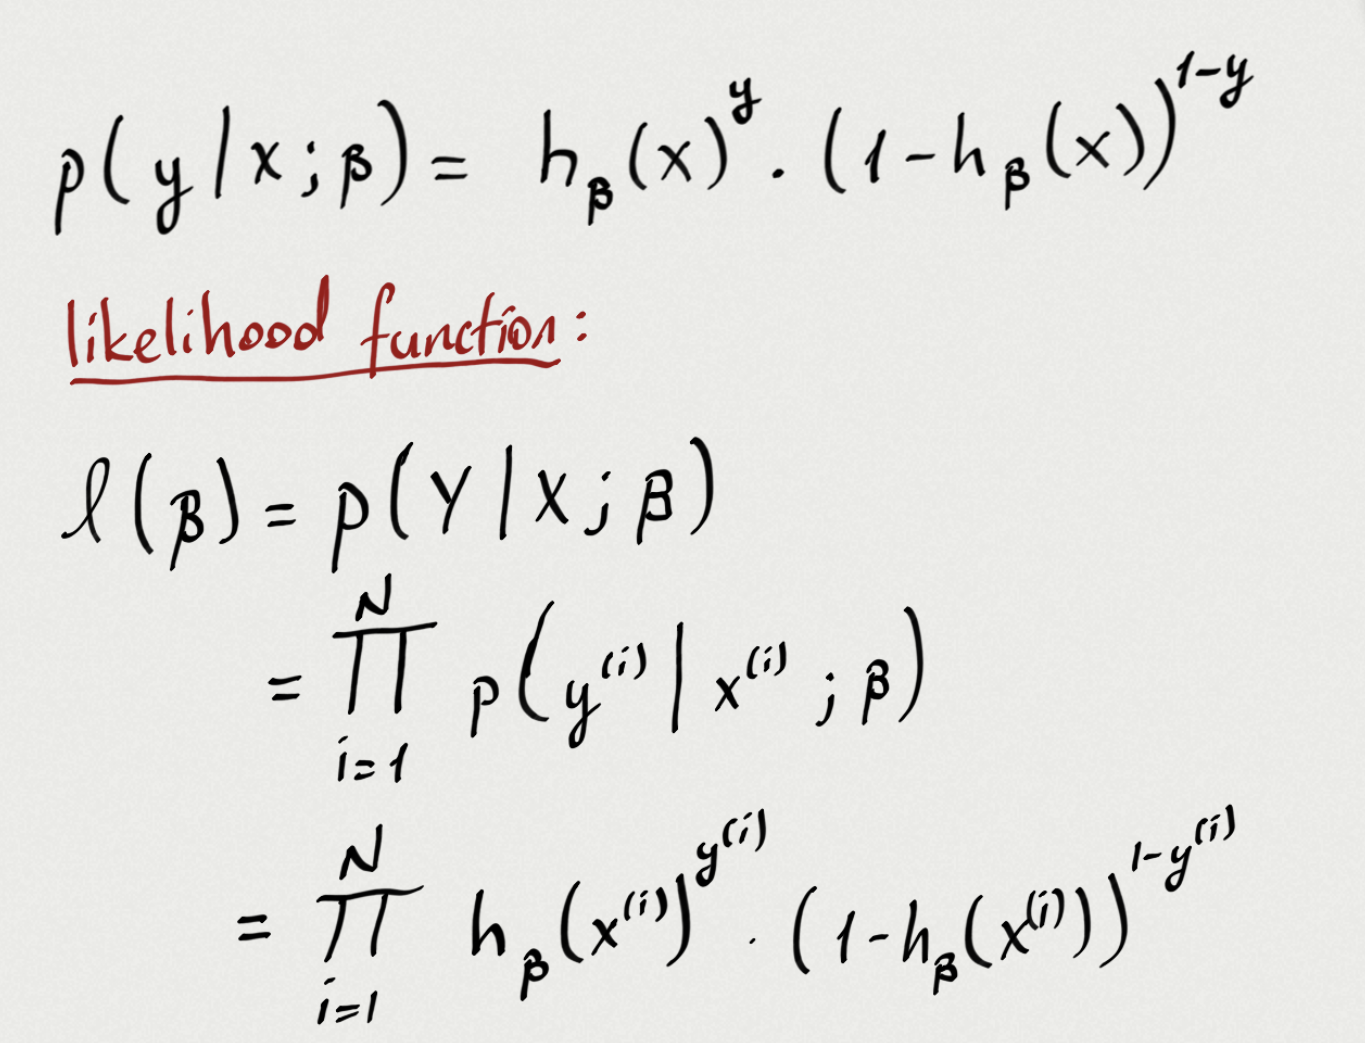 p(y|x;β) = h_β(x)^y · (1-h_β(x))^{1-y}
likelihood function:
ℓ(β) = p(Y|X;β)
= ∏_{i=1}^{N} p(y^{(i)}|x^{(i)};β)
= ∏_{i=1}^{N} h_β(x^{(i)})^{y^{(i)}} · (1-h_β(x^{(i)}))^{1-y^{(i)}}